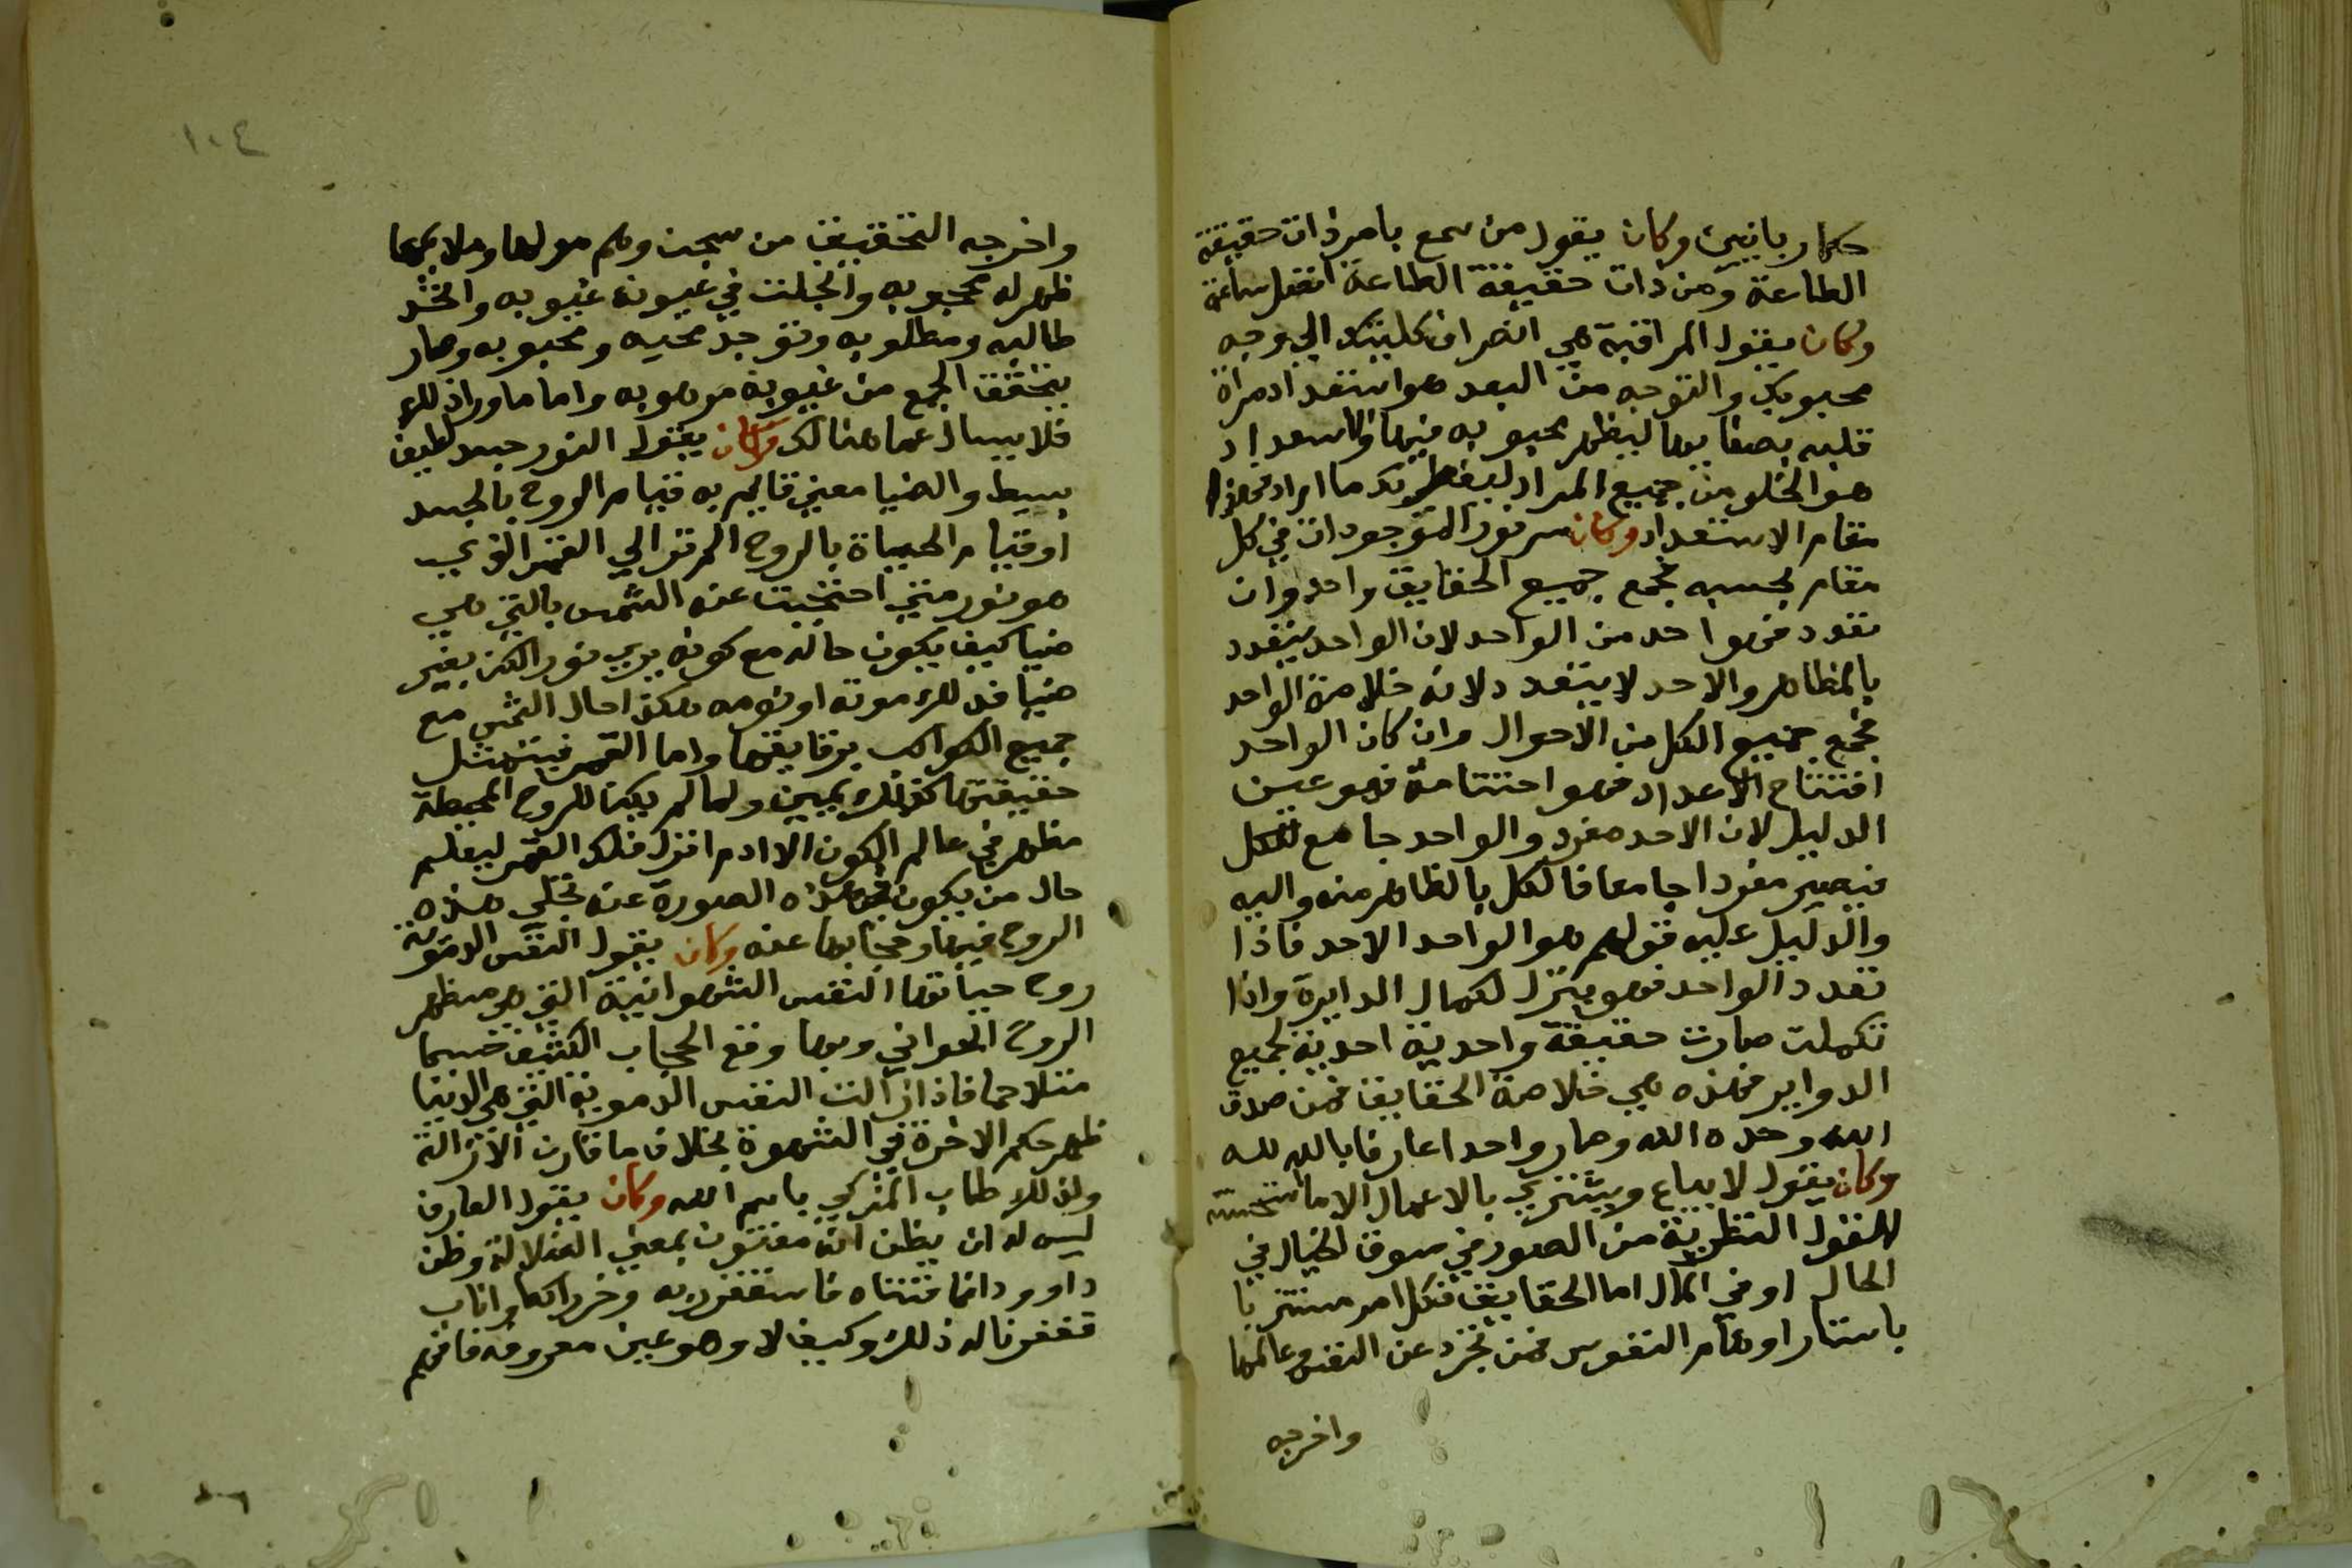 حكما ربانيين وكان يقول من سمع بامر ذات حقيقة
الطاعة ومن ذات حقيقة الطاعة انفعل ساعته
وكان يقول المراقبة هي انصراف كليتك الي وجه
محبوبك والتوجه من العبد هو استعداد مراة
قلبه بصفايها ليظهر محبوبه فيها والاستعداد
هو الخلو من جميع المراد ليفطرك ما اراد فهذا
مقام الاستعداد وكان سر نور الموجودات في كل
مقام بحسبه مجمع جميع الحقايق واحد وان
تعدد فهو احد من الواحد لان الواحد يتعدد
بالمظاهر والاحد لا يتعدد لانه خلاصة الواحد
مجمع جميع الكل من الاحوال وان كان الواحد
افتتاح الاعداد فهو اختتامه فهو عين
الدليل لان الاحد مفرد والواحد جامع للكل
فيصير مفردا جامعا فالكل بالظاهر منه واليه
والدليل عليه قولهم هو الواحد الاحد فاذا
تعدد الواحد فهو ينزل لكمال الدايرة واذا
تكملت صارت حقيقة واحدية احدية لجميع
الدواير فهذه هي خلاصة الحقايق فمن صدق
الله وحده الله وصار واحدا عارفا بالله لله
وكان يقول لا يباع ويشتري بالاعمال الا ما
النظرية من الصور في سوق الخيال في
الحال او في المال اما الحقايق فكل امر مستتر با
باستار اوهام النفوس فمن تجرد عن النفس وعالمها
واخرجه
١٠٤
واخرجه التحقيق من سجن وهم هولها وملايمها
ظهر له محبوبه وانجلت في عيونه غيوبه واتحد
طالبه ومطلوبه وتوحد محبه ومحبوبه وصار
بتحقق الجمع من غيوبه موهوبه واما ما ورا ذلك
فلا يسال عما هنالك وكان يقول النور جسد لطيف
بسيط والضيا معني قايم به قيام الروح بالجسد
او قيام الحياة بالروح الم تر الي القمر الذي
هو نور متي احتجبت عنه الشمس بالتي هي
ضيا كيف يكون حاله مع كونه يري نورا لكن بغير
ضيا فذلك موته او نومه هكذا حال الشمس مع
جميع الكواكب برقايقها واما القمر فيتمثل
حقيقتها كذلك يبين ولما لم يكن للروح المحيطة
مظهر في عالم الكون الا ادم انزل فلك القمر ليعلم
حال من يكون في هذه الصورة عند تجلي هذه
الروح فيها وحجابها عنه وكان يقول النفس الدموية
روح حياتها النفس الشهوانية التي هو مظهر
الروح وبها وقع الحجاب الكثيف
متلاحما فاذا زالت النفس الدموية التي هي الدنيا
ظهر حكم الاخرة في الشهوة بخلاف ما قارن الازالة
ولذلك طاب المذكي باسم الله وكان يقول العارف
ليس له ان يظن انه مفتون بمعني الضلالة وظن
داوود انما فتناه فاستغفر ربه وخر راكعا واناب
فغفرنا له ذلك وكيف لا وهو عين معروفه فافهم